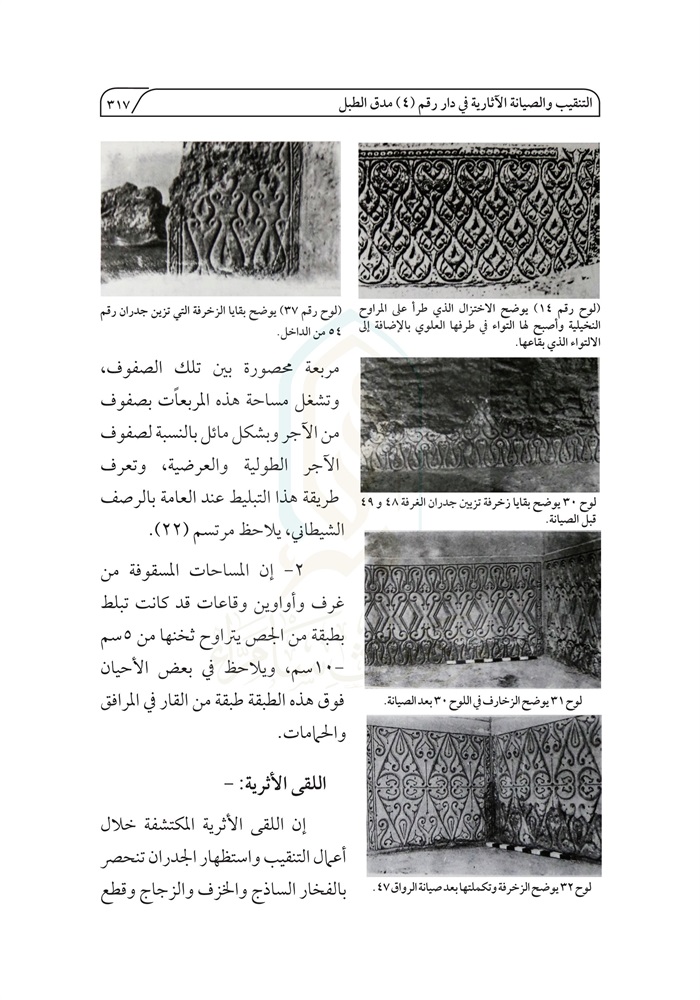 التنقيب والصيانة الآثارية في دار رقم (٤) مدق الطبل
٣١٧
(لوح رقم ١٤) يوضح الاختزال الذي طرأ على المراوح
النخيلية وأصبح لها التواء في طرفها العلوي بالإضافة إلى
الالتواء الذي بقاعها.
لوح ٣٠ يوضح بقايا زخرفة تزيين جدران الغرفة ٤٨ و ٤٩
قبل الصيانة.
لوح ٣١ يوضح الزخارف في اللوح ٣٠ بعد الصيانة.
لوح ٣٢ يوضح الزخرفة وتكملتها بعد صيانة الرواق ٤٧.
(لوح رقم ٣٧) يوضح بقايا الزخرفة التي تزين جدران رقم
٥٤ من الداخل.
مربعة محصورة بين تلك الصفوف،
وتشغل مساحة هذه المربعاًت بصفوف
من الآجر وبشكل مائل بالنسبة لصفوف
الآجر الطولية والعرضية، وتعرف
طريقة هذا التبليط عند العامة بالرصف
الشيطاني، يلاحظ مرتسم (٢٢).
٢- إن المساحات المسقوفة من
غرف وأواوين وقاعات قد كانت تبلط
بطبقة من الجص يتراوح ثخنها من ٥سم
-١٠سم، ويلاحظ في بعض الأحيان
فوق هذه الطبقة طبقة من القار في المرافق
والحمامات.
اللقى الأثرية: -
إن اللقى الأثرية المكتشفة خلال
أعمال التنقيب واستظهار الجدران تنحصر
بالفخار الساذج والخزف والزجاج وقطع